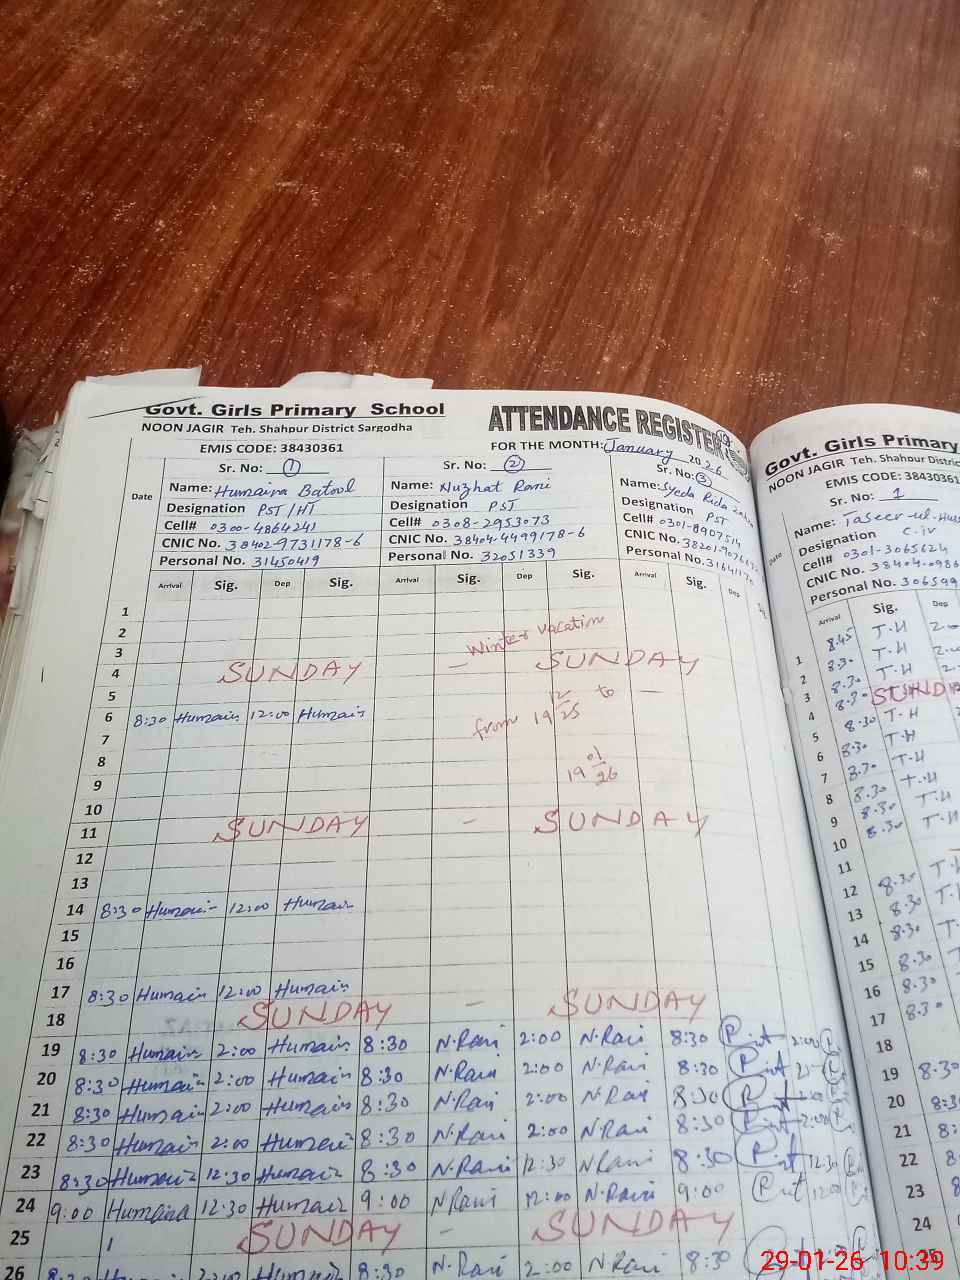 Govt. Girls Primary School
NOON JAGIR Teh. Shahpur District Sargodha
EMIS CODE: 38430361
ATTENDANCE REGISTER
FOR THE MONTH: January 2026
Date
Sr. No: 1
Name: Humaira Batool
Designation PST/HT
Cell# 0300-4864241
CNIC No. 38402-9731178-6
Personal No. 31450419
Sr. No: 2
Name: Nuzhat Rani
Designation PST
Cell# 0308-2953073
CNIC No. 38404-4499178-6
Personal No. 32051339
Sr. No: 3
Name: Syeda Rida
Designation PST
Cell# 0301-8907514
CNIC No.
Personal No.
Arrival Sig. Dep Sig. Arrival Sig. Dep Sig. Arrival Sig. Dep
1
2 Winter vacation
3
4 SUNDAY - SUNDAY
5 from 19 12/25 to
6 8:30 Humair 12:00 Humair
7
8
9 19 01/26
10
11 SUNDAY - SUNDAY
12
13
14 8:30 Humair 12:00 Humair
15
16
17 8:30 Humair 12:00 Humair
18 SUNDAY - SUNDAY
19 8:30 Humair 2:00 Humair 8:30 N.Rani 2:00 N.Rani 8:30 2:00
20 8:30 Humair 2:00 Humair 8:30 N.Rani 2:00 N.Rani 8:30
21 8:30 Humair 2:00 Humair 8:30 N.Rani 2:00 N.Rani 8:30
22 8:30 Humair 2:00 Humair 8:30 N.Rani 2:00 N.Rani 8:30 2:00
23 8:30 Humair 12:30 Humair 8:30 N.Rani 12:30 N.Rani 8:30 12:30
24 9:00 Humaira 12:30 Humair 9:00 N.Rani 12:00 N.Rani 9:00 12:00
25 SUNDAY - SUNDAY
26 8:30 N.Rani 2:00 N.Rani 8:30
Govt. Girls Primary
NOON JAGIR Teh. Shahpur
EMIS CODE: 38430361
Sr. No: 1
Name: Taseer-ul-
Designation C.iv
Cell# 0301-3065624
CNIC No. 38404-0986
Personal No. 306599
Date
Arrival Sig. Dep
1 8.45 T.H
2 8.30 T.H
3 8.30 T.H
4 8.30 SUND
5 8.30 T.H
6 8.30 T.H
7 8.30 T.H
8 8.30 T.H
9 8.30 T.H
10 8.30 T.H
11
12 8.30
13 8.30
14 8.30
15 8.30
16 8.30
17 8.30
18
19 8.30
20
21
22
23
24
29-01-26 10:39